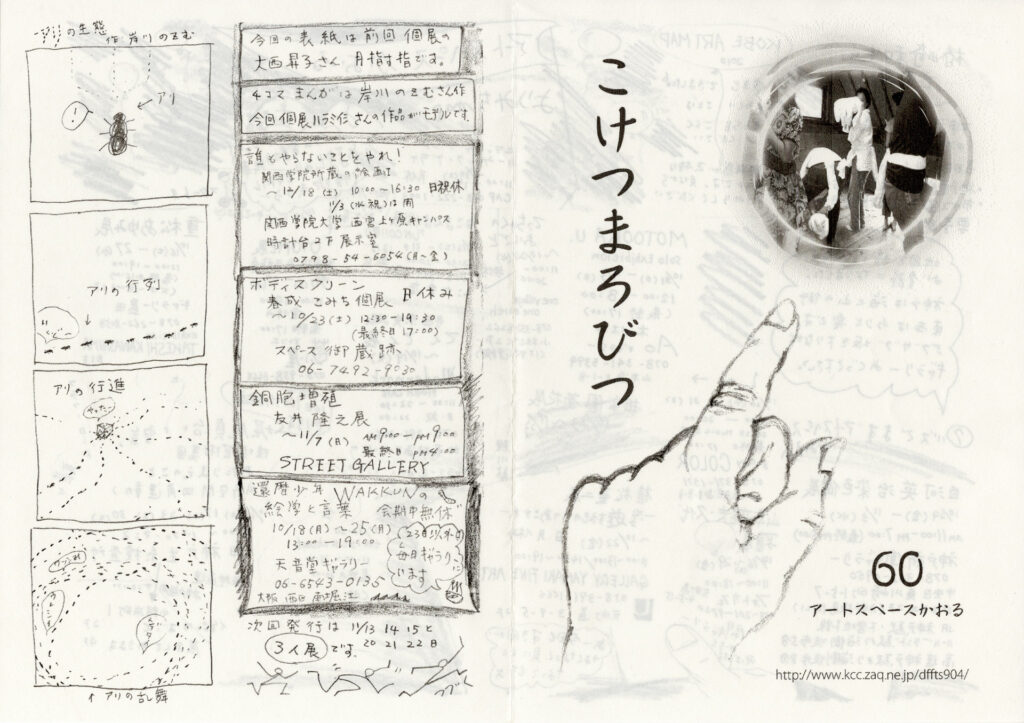 の生態
作 岸川のぞむ
アリ
アリの行列
アリの行進
↑アリの乱舞
今回の表紙は前回個展の
大西昇子さん 月指す指です。
4コマまんがは岸川のぞむさん作
今回個展
さんの作品がモデルです
誰もやらないことをやれ!
関西学院所蔵の絵画Ⅰ
~12/18(土) 10:00~16:30 日祝休
11/3(水祝)は開
関西学院大学 西宮上ヶ原キャンパス
時計台2F 展示室
0798-54-6054(月-金)
ボディスクリーン
春成こみち個展 月休み
~10/23(土) 12:30-19:30
(最終日17:00)
スペース御蔵跡
06-7492-9030
銅胞増殖
友井隆之展
~11/7(日) AM9:00-PM9:00
最終日PM4:00
STREET GALLERY
還暦少年 WAKKUNの
絵字と言葉 会期中無休
10/18(月)~25(月)
13:00-19:00
23日以外は
毎日ギャラリーに
います
天音堂ギャラリー
06-6543-0135
大阪西区南堀江
次回発行は 11/13 14 15 と
20 21 22日
3人展です。
こけつまろびつ
60
アートスペースかおる
http://www.kcc.zaq.ne.jp/dffts904/